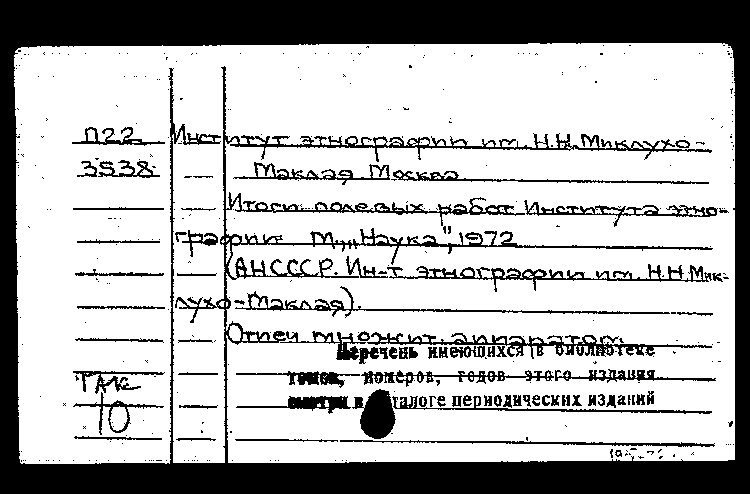 П22 Институт этнографии им. Н.Н. Миклухо-
3538 Маклая Москва
Итоги полевых работ Института этно-
графии. М., „Наука", 1972
(АН СССР. Ин-т этнографии им. Н.Н. Мик-
лухо-Маклая).
Отпеч множит. аппаратом.
Перечень имеющихся в библиотеке
томов, номеров, годов этого издания
смотри в каталоге периодических изданий
ТАК
10